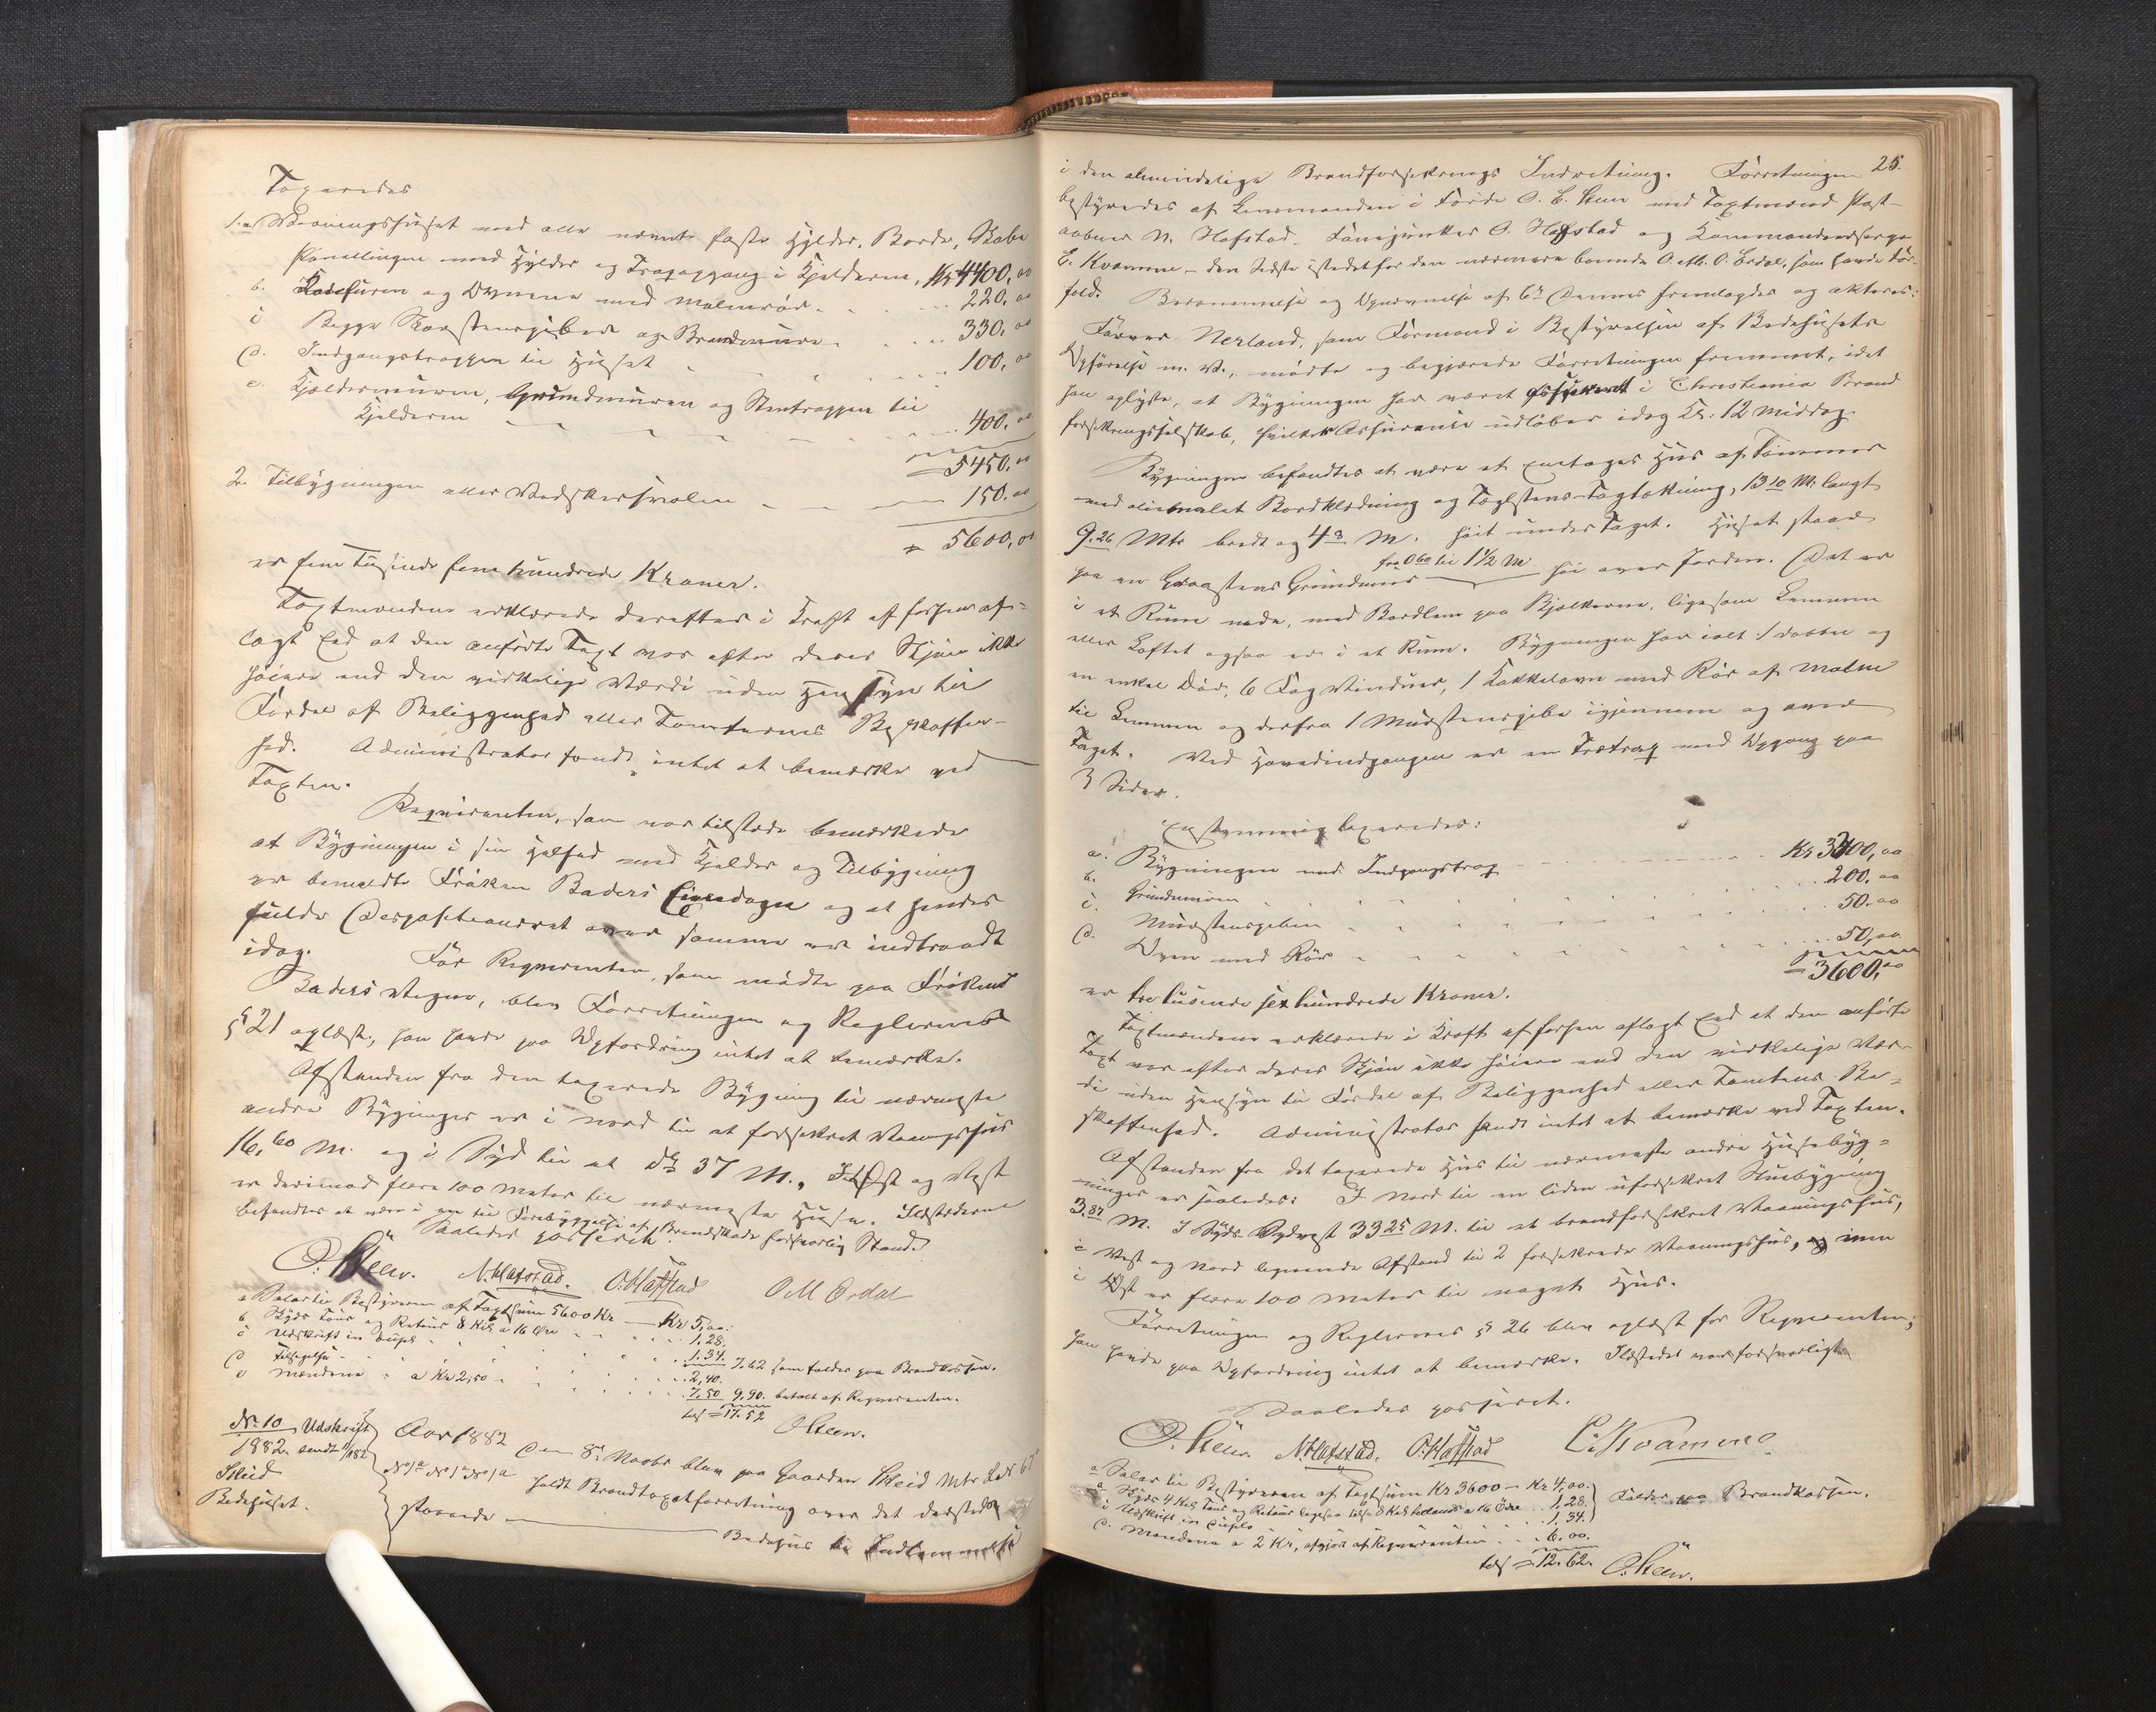 Taxeredes
1.a Vaaningshuset med alle nævnte faste Hylder, Borde, Skabe
Panellingen med Hylder og Trapopgang i Kjelderen, Kr 4400,00
b. og Ovnene med Malmrør 220,00
c Begge Skorstenspiber og Brandmure 330,00
d. Indgangstrappen til Huset 100,00
e. Kjældermuren, Grundmuren og Stentrappen til
Kjelderen 400,00
= 5450,00
2. Tilbygningen eller Vedskersvalen 150,00
= 5600,00
er fem Tusinde sex hundrede Kroner.
Taxtmændene erklærede derefter i Kraft af forhen af=
lagt Eed at den anførte Taxt var efter deres Skjøn ikke
høiere end den virkelige Værdi uden Hensyn til
Fordel af Beliggenhed eller Tomternes Beskaffen-
hed. Administrator fandt intet at bemærke ved
Taxten.
Reqvirenten, som var tilstede bemærkede
at Bygningen i sin Helhed med Kjelder og Tilbygning
er bemeldte Frøken Baders Eiendom og at hendes
fulde Disposisionsret over samme er indtraadt
idag. For Reqvirenten, som mødte paa Frøken
Baders Vegne, blev Forretningen og Reglernes
§ 21 oplæst, han havde paa Opfordring intet at bemærke.
Afstanden fra den taxerede Bygning til nærmeste
andre Bygninger er i Nord til et forsikret Vaaningshus
16,60 M. og i Syd til et do 37 M., I Øst og Vest
er derimod flere 100 Meter til nærmeste Huse. Ildstederne
befandtes at være i en til Forebyggelse af Brandskade forsvarlig Stand.
Saaledes passeret.
O. Steen. N. Hafstad. O. Hafstad O M Ørdal
a Salær til Bestyreren af Taxtsum 5600 Kr — Kr 5,00.
b Skyds Tour og Retour 8 Kil a 16 Øre 1,28.
c Udskrift in duplo 1,34. 7.62 som falder paa Brandkassen.
d Tilsigelse 2,40.
e Mændene a Kr 2,50 7,50 9,90. betalt af Reqvirenten.
tils = 17.52 O Steen.
No. 10 Udskrift
1882. sendt 9/1 82
Skeid
Bedehuset.
Aar 1882 den 8de Marts blev paa Gaarden Skeid Mtr Lno 67
No 1a No 1a No 1a holdt Brandtaxtforretning over det dersteds
staaende — Bedehus til Indlemmelse
25.
i den almindelige Brandforsikrings Indretning. Forretningen
bestyredes af Lensmanden i Førde O. E. Steen med Taxtmænd Post-
aabner N. Hafstad, Fanejunker O. Hafstad og Kommandersergeant
E. Kvamme – den sidste istedetfor den nærmere boende O. M. O. Ørdal, som havde For-
fald. Berammelse og Opnævnelse af 6te Dennes fremlagdes og akteres:
Farver Nerland, som Formand i Bestyrelsen af Bedehusets
Opførelse m. V., mødte og begjærede Forretningen fremmet, idet
han oplyste, at Bygningen har været forsikret i Christiania Brand
forsikringsselskab, hvilken Assurance udløber idag Kl: 12 Middag.
Bygningen befandtes at være et enetages Hus af Tømmer
med oliemalet Bordklædning og Taglstens-Tagtækning, 13 10 M. langt
9.26 Mtr bredt og 4 8 M. høit under Taget. Huset staar
paa en Graastens Grundmur fra 0 60 til 1½ M høi over Jorden. Det er
i et Rum nede, med Bordlem paa Bjælkerne, ligesom Lemmen
eller Loftet ogsaa er i et Rum. Bygningen har ialt 1 dobbel og
en enkel Dør, 6 Fag Vinduer, 1 Kakkelovn med Rør af Malm
til Lemmen og derfra 1 Murstenspibe igjennem og over
Taget. Ved Hovedindgangen er en Trætrap med Opgang paa
3 Sider.
Enstemmig taxeredes:
a. Bygningen med Indgangstrap Kr 3300,00
b. Grundmuren 200,00
c. Murstenspiben 50.00
d. Ovn med Rør 50,00
= 3600,00
er tre tusinde sex hundrede Kroner.
Taxtmændene erklærede i Kraft af forhen aflagt Eed at den anførte
Taxt var efter deres Skjøn ikke høiere end den virkelige Vær-
di uden Hensyn til Fordel af Beliggenhed eller Tomtens Be-
skaffenhed. Administrator fandt intet at bemærke ved Taxten.
Afstanden fra det taxerede Hus til nærmeste andre Husebyg=
ninger er saaledes: I Nord til en liden uforsikret Stuebygning
3.87 M. I Syd Sydvest 33 25 M. til et brandforsikret Vaaningshus,
i Vest og Nord lignende Afstand til 2 forsikrede Vaaningshus, og men
i Øst er flere 100 Meter til noget Hus.
Forretningen og Reglernes § 26 blev oplæst for Reqvirenten;
han havde paa Opfordring intet at bemærke. Ildstedet var forsvarligt
Saaledes passeret.
O. Steen. N. Hafstad. O. Hafstad E. Kvamme
a Salær til Bestyreren af Taxtsum Kr 3600 – Kr 4,00.
b Skyds 4 Kil Tour og Retour ligesaa 8 Kil a 16 Øre 1,28. Falder paa Brandkassen.
c Udskrift in duplo 1,34.
d. Mændene a 2 Kr, afgjort af Reqvirenten 6.00.
tils = 12.62. O. Steen.